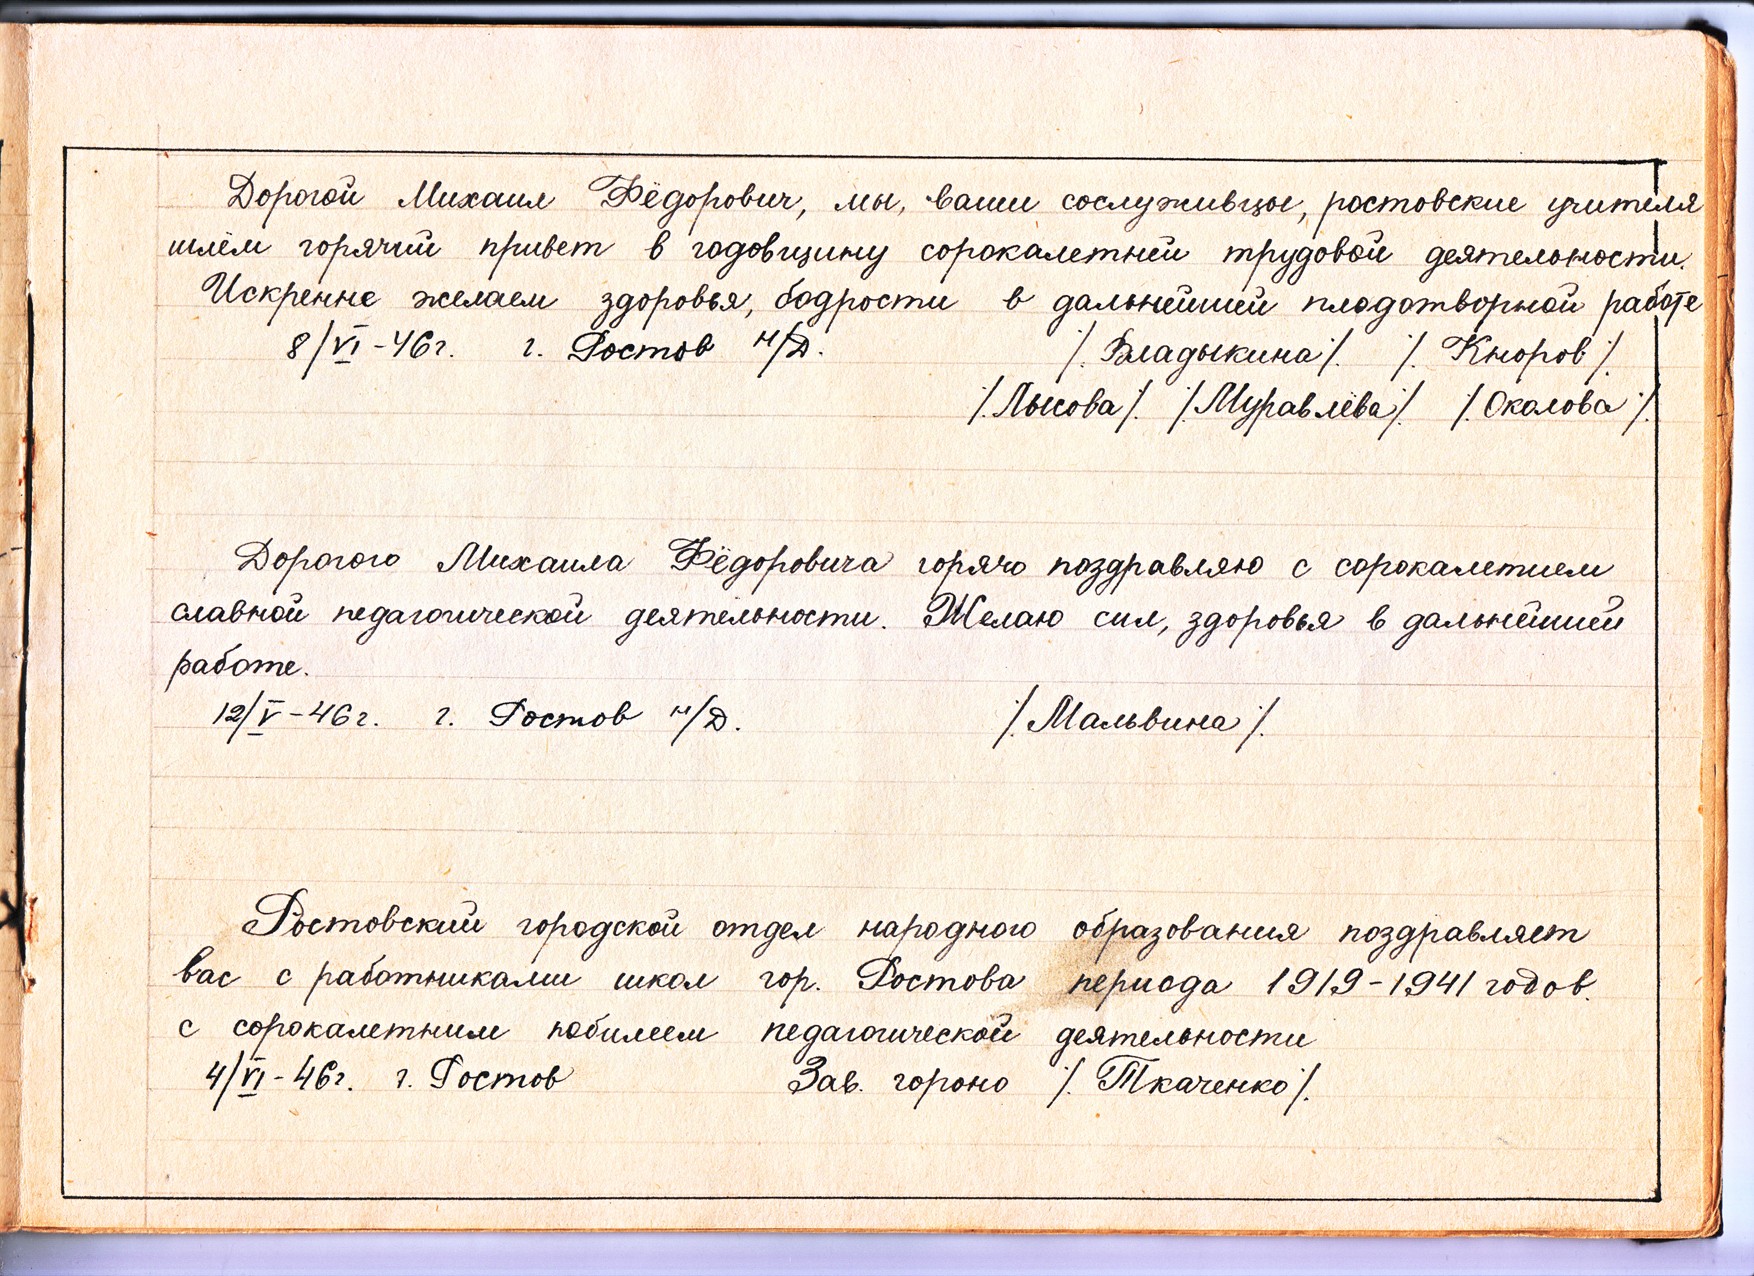 Дорогой Михаил Фёдорович, мы, ваши сослуживцы, ростовские учителя
шлём горячий привет в годовщину сорокалетней трудовой деятельности.
Искренне желаем здоровья, бодрости в дальнейшей плодотворной работе
8/VI-46г. г. Ростов н/Д. /. Владыкина /. /. Кноров /.
/. Лысова /. /. Муравлёва /. /. Околова /.
Дорогого Михаила Фёдоровича горячо поздравляю с сорокалетием
славной педагогической деятельности. Желаю сил, здоровья в дальнейшей
работе.
12/V-46г. г. Ростов н/Д. /. Мальвина /.
Ростовский городской отдел народного образования поздравляет
вас с работниками школ гор. Ростова периода 1919-1941 годов.
с сорокалетним юбилеем педагогической деятельности
4/VI-46г. г. Ростов Зав. гороно /. Ткаченко /.